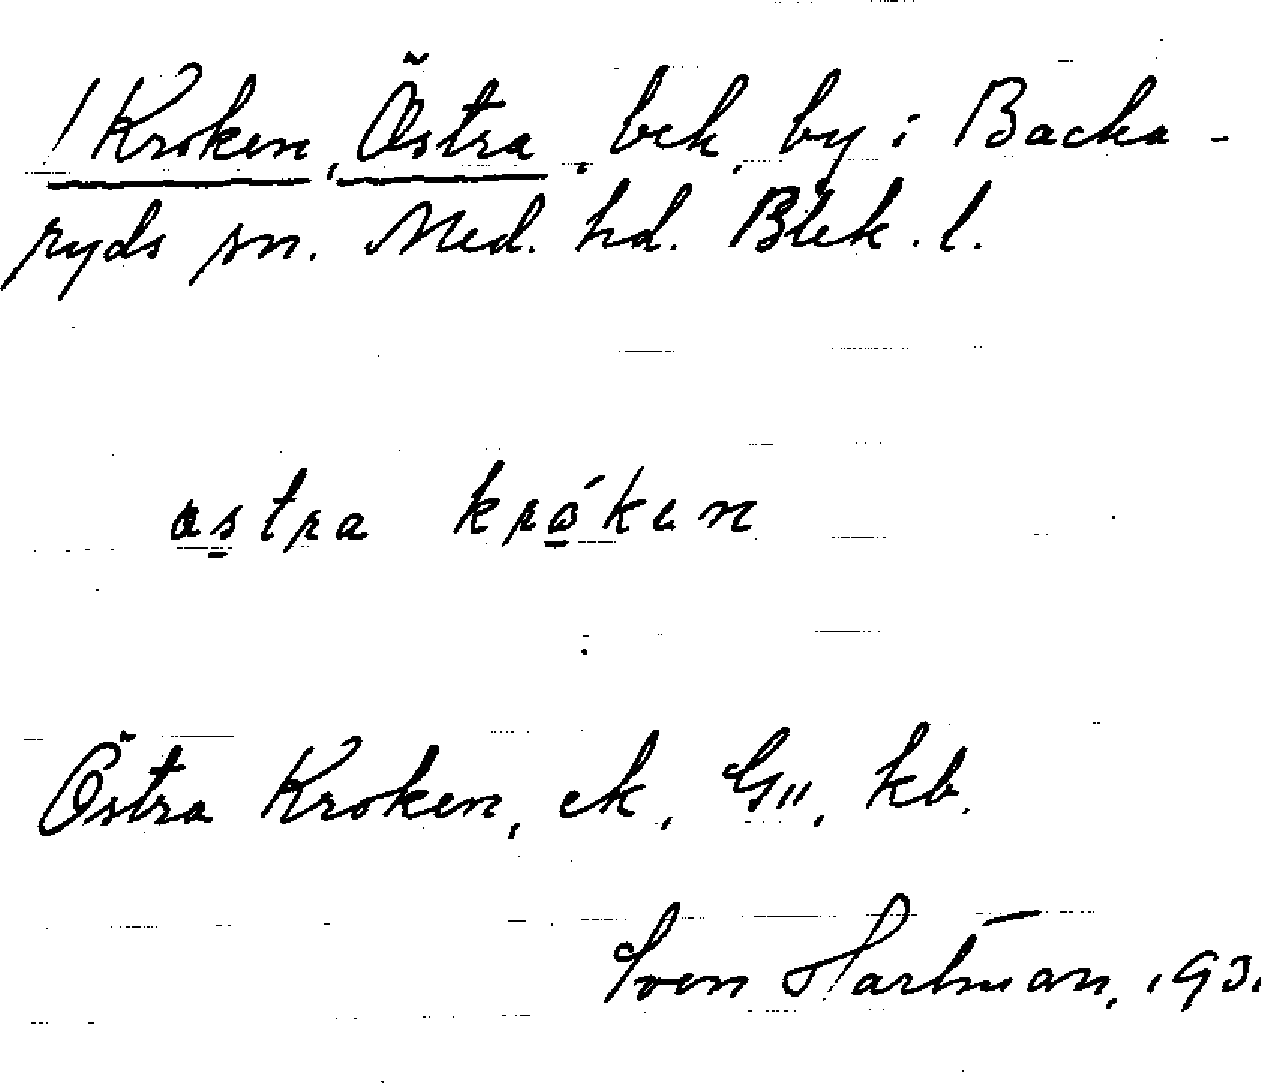 /Kroken, Östra, bek, by i Backa-
ryds sn. Med. hd. Blek. l.
astra króken
Östra Kroken, ek, G11, kb.
Sven Hartman, 193.